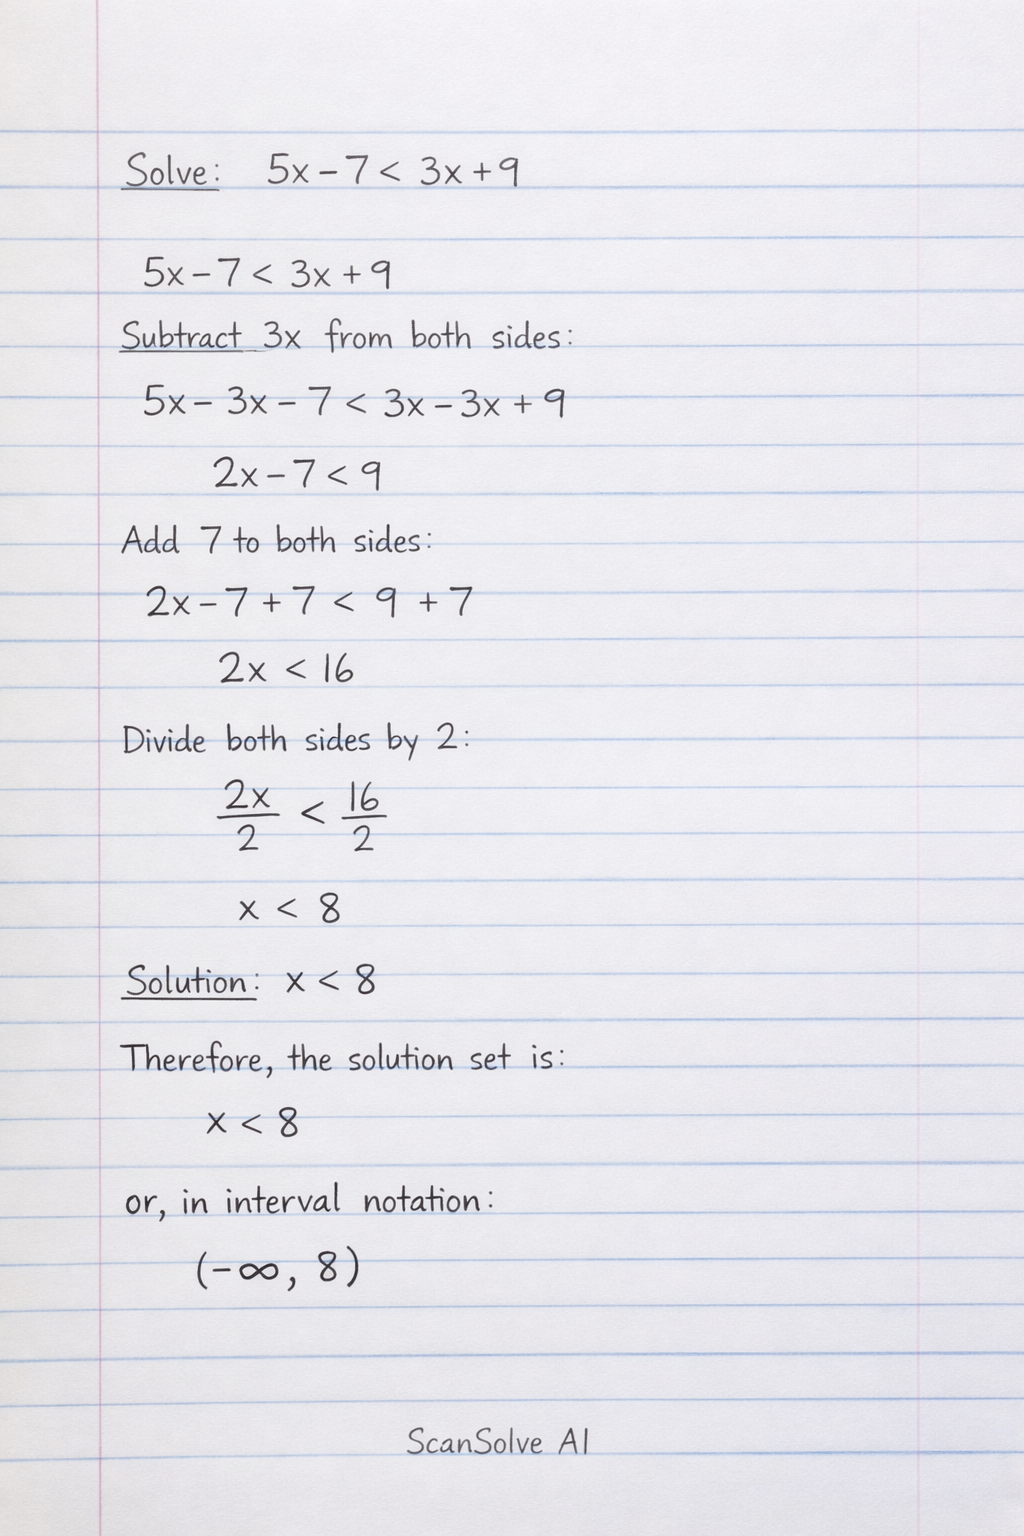 Solve: 5x - 7 < 3x + 9
5x - 7 < 3x + 9
Subtract 3x from both sides:
5x - 3x - 7 < 3x - 3x + 9
2x - 7 < 9
Add 7 to both sides:
2x - 7 + 7 < 9 + 7
2x < 16
Divide both sides by 2:
2x/2 < 16/2
x < 8
Solution: x < 8
Therefore, the solution set is:
x < 8
or, in interval notation:
(-∞, 8)
ScanSolve AI